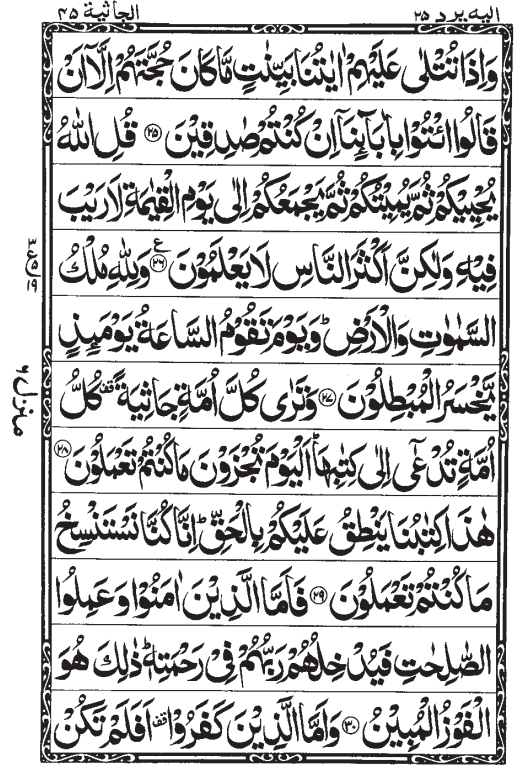 الیه یرد ۲۵
الجاثیة ۴۵
وَاِذَا تُتْلٰى عَلَيْهِمْ اٰيٰتُنَا بَيِّنٰتٍ مَّا كَانَ حُجَّتَهُمْ اِلَّاۤ اَنْ
قَالُوا ائْتُوْا بِاٰبَآئِنَاۤ اِنْ كُنْتُمْ صٰدِقِيْنَ ﴿۲۵﴾ قُلِ اللّٰهُ
يُحْيِيْكُمْ ثُمَّ يُمِيْتُكُمْ ثُمَّ يَجْمَعُكُمْ اِلٰى يَوْمِ الْقِيٰمَةِ لَا رَيْبَ
فِيْهِ وَلٰكِنَّ اَكْثَرَ النَّاسِ لَا يَعْلَمُوْنَ ﴿۲۶﴾ ع وَلِلّٰهِ مُلْكُ
السَّمٰوٰتِ وَالْاَرْضِ ؕ وَيَوْمَ تَقُوْمُ السَّاعَةُ يَوْمَئِذٍ
يَّخْسَرُ الْمُبْطِلُوْنَ ﴿۲۷﴾ وَتَرٰى كُلَّ اُمَّةٍ جَاثِيَةً قف كُلُّ
اُمَّةٍ تُدْعٰۤى اِلٰى كِتٰبِهَا ؕ اَلْيَوْمَ تُجْزَوْنَ مَا كُنْتُمْ تَعْمَلُوْنَ ﴿۲۸﴾
هٰذَا كِتٰبُنَا يَنْطِقُ عَلَيْكُمْ بِالْحَقِّ ؕ اِنَّا كُنَّا نَسْتَنْسِخُ
مَا كُنْتُمْ تَعْمَلُوْنَ ﴿۲۹﴾ فَاَمَّا الَّذِيْنَ اٰمَنُوْا وَعَمِلُوا
الصّٰلِحٰتِ فَيُدْخِلُهُمْ رَبُّهُمْ فِيْ رَحْمَتِهٖ ؕ ذٰلِكَ هُوَ
الْفَوْزُ الْمُبِيْنُ ﴿۳۰﴾ وَاَمَّا الَّذِيْنَ كَفَرُوْا قف اَفَلَمْ تَكُنْ
منزل ۶